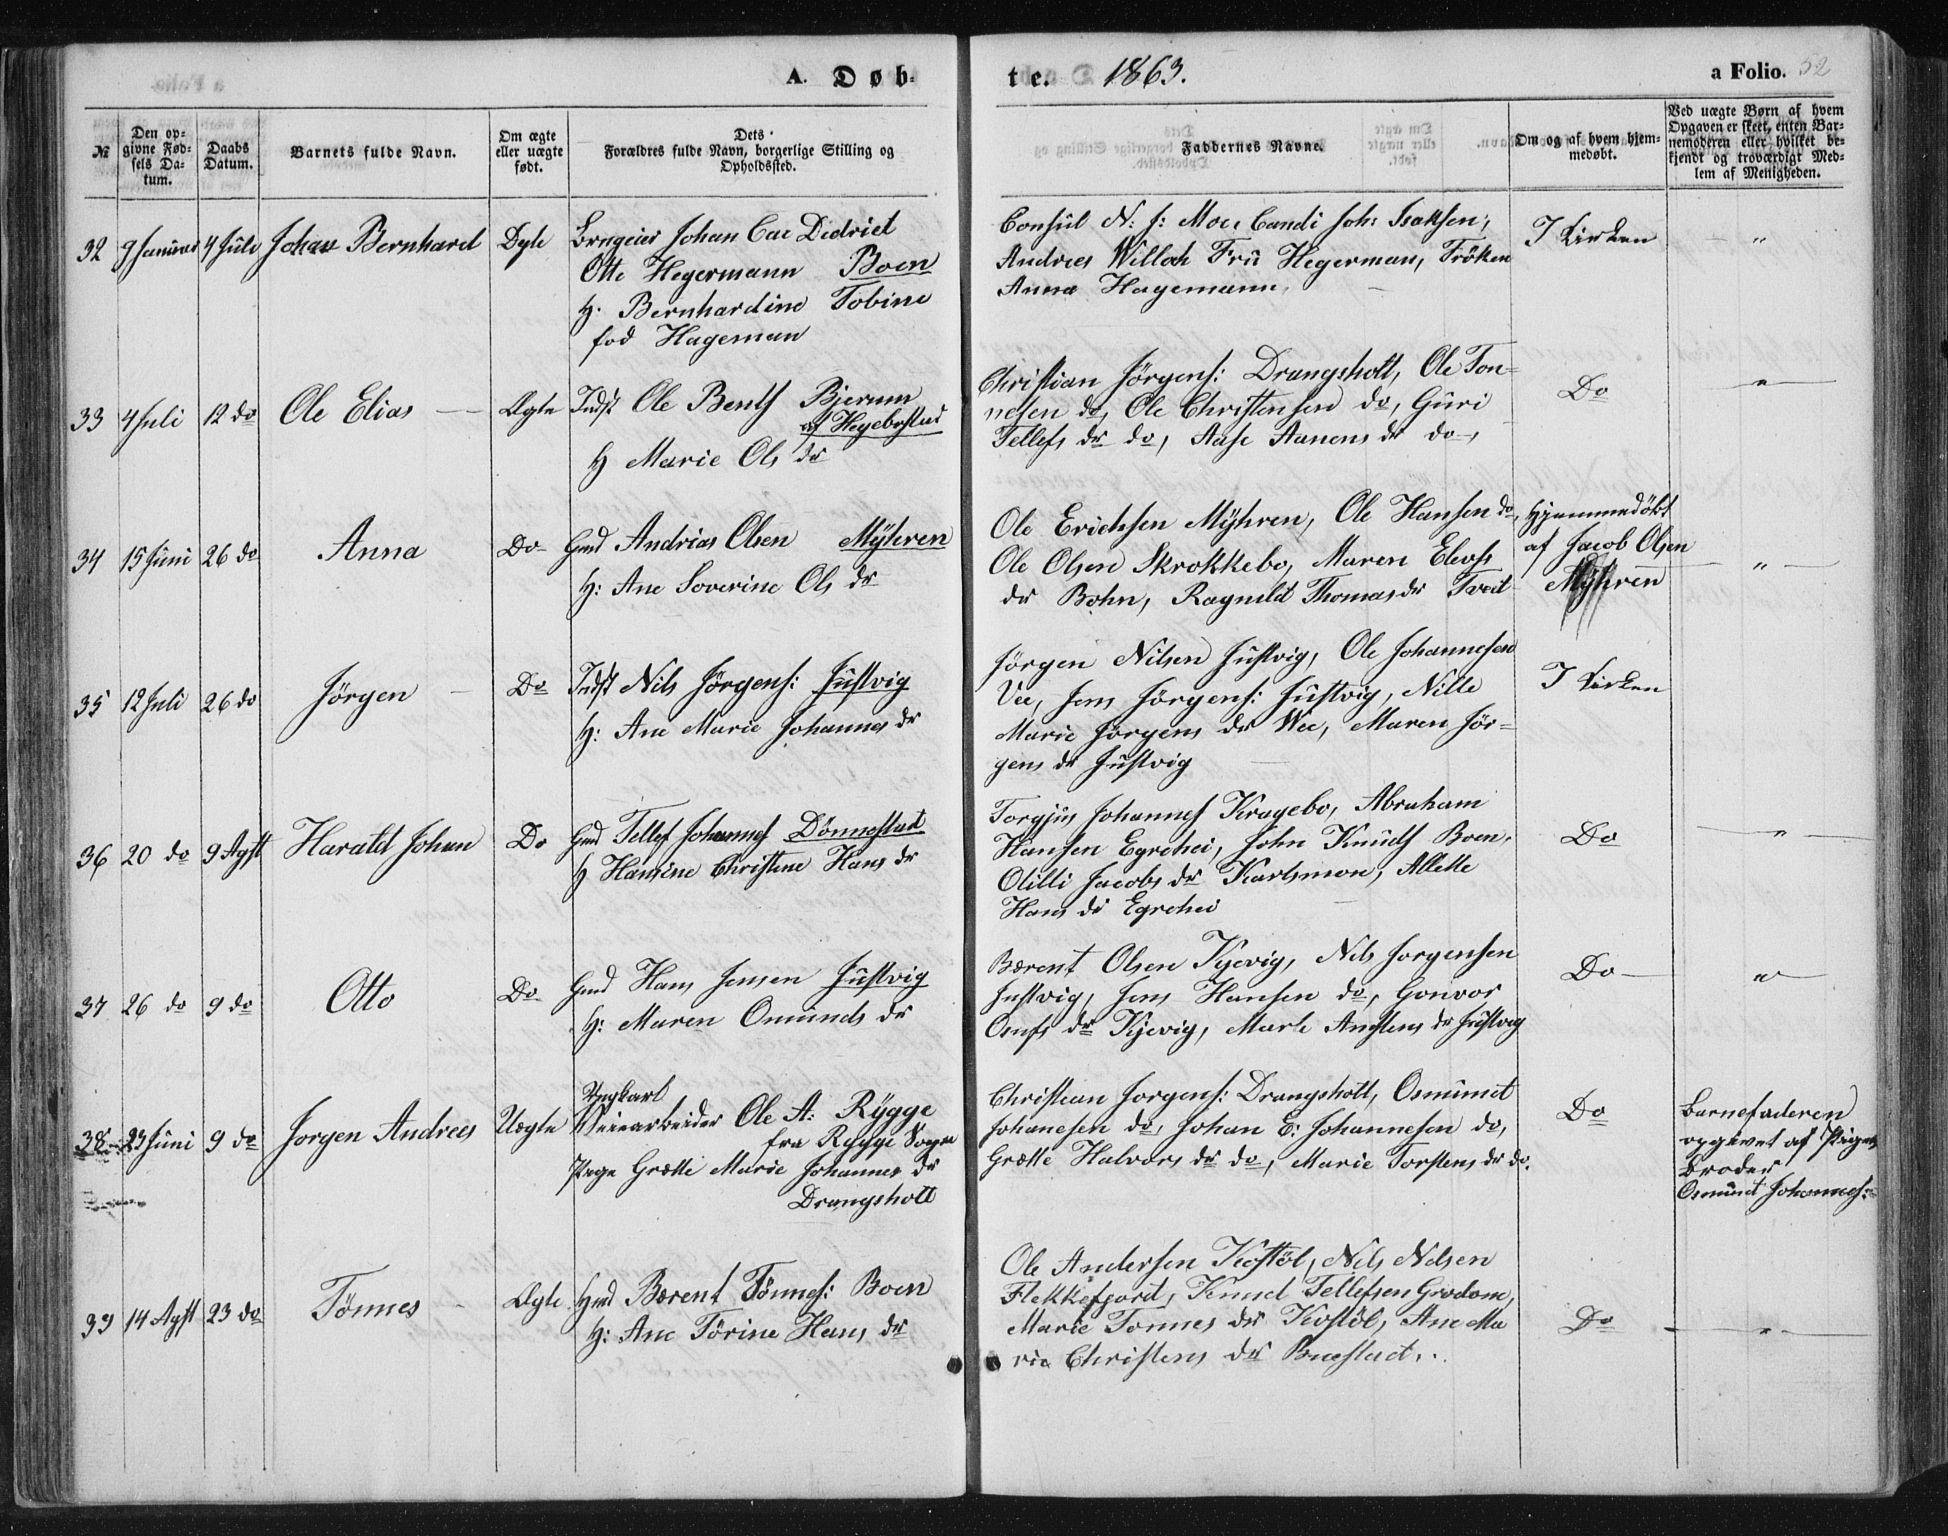 A. Døb-
te. 1863.
a Folio. 52
№
Den op-
givne Fød-
sels Da-
tum.
Daabs
Datum.
Barnets fulde Navn.
Om ægte
eller uægte
født.
Dets
Forældres fulde Navn, borgerlige Stilling og
Opholdssted.
Faddernes Navne.
Om og af hvem hjem-
medøbt.
Ved uægte Børn af hvem
Opgaven er skeet, enten Bar-
nemoderen eller hvilket be-
kjendt og troværdigt Med-
lem af Menigheden.
32 9 Januar 4 Juli Johan Bernhard Ægte
Johan Car Didrick
Otto Hegermann Boen
H: Bernhardine Tobine
fød Hageman
Consul N: J: Moe, Candi Joh: Isaksen,
Andreas Willoch Frü Hegerman, Fröken
Anna Hagemann.
I Kirken "
33 4 Juli 12 do Ole Elias Ægte
Indst Ole Bents Bjerum
af Hegebostad
H Marie Ols dr
Christian Jörgens: Drangsholt, Ole Ton-
nesen do, Ole Christensen do, Güri
Tellefs dr do, Aase Aanens dr do,
Do "
34 15 Jüni 26 do Anna Do
Gmd Andrias Olsen Mÿhren
H: Ane Soverine Ols dr
Ole Erichsen Mÿhren, Ole Hansen do,
Ole Olsen Skrokkebo, Maren Elevs
dr Bohn, Ragnild Thomasdr Tveit
Hjemmedöbt
af Jacob Olsen
Mÿhren
"
35 12 Juli 26 do Jörgen Do
Indst Nils Jörgens: Jüstvig
H: Ane Marie Johannes dr
Jörgen Nilsen Jüstvig, Ole Johannesen
Vee, Jens Jörgens: Jüstvig, Nille
Marie Jörgens dr Wee, Maren Jör-
gens dr Jüstvig
I Kirken
36 20 do 9 Agst Harald Johan Do
Gmd Tellef Johannes Dönnestad
H Hansine Christine Hans dr
Torgjüs Johannes Kragebo, Abraham
Hansen Egrehei, John Knüds Boen,
Olilli Jacobs dr Karlsmon, Allette
Hans dr Egrehei
Do "
37 26 do 9 do Otto Do
Gmd Hans Jensen Jüstvig
H: Maren Omunds dr
Bærent Olsen Kjevig, Nils Jorgensen
Justvig, Jens Hansen do, Gonvor
Omfs dr Kjevig, Marte Anstens dr Jüstvig
Do "
38 23 Jüni 9 do Jorgen Andreas Uægte
Ungkarl
Veiearbeider Ole A: Rÿgge
fra Rygge Sogn
Pige Grætte Marie Johannes dr
Drangsholt
Christian Jorgens: Drangsholt, Osmünd
Johanesen do, Johan E: Johannesen do,
Grætte Halvors dr do, Marie Torstens dr do.
Do
Barnefaderen
opgivet af Pigens
Broder
Osmünd Johannes:
39 14 Agst 23 do Tönnes Ægte
Gmd Bærent Tönnes: Boen
H: Ane Törine Hans dr
Ole Andersen Kostöl, Nils Nilsen
Flekkefjord, Knud Tellefsen Grodom,
Marie Tonnes dr Kostöl, Ane Ma
rie Christens dr Buestad.
Do "